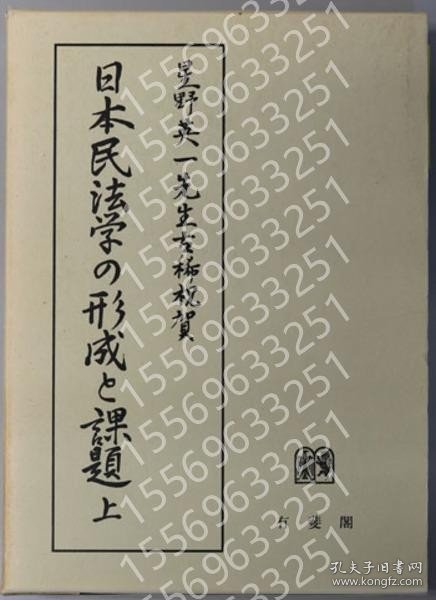 星野英一先生古稀祝賀
日本民法学の形成と課題 上
有斐閣
15569633251
孔夫子旧书网
www.kongfz.com